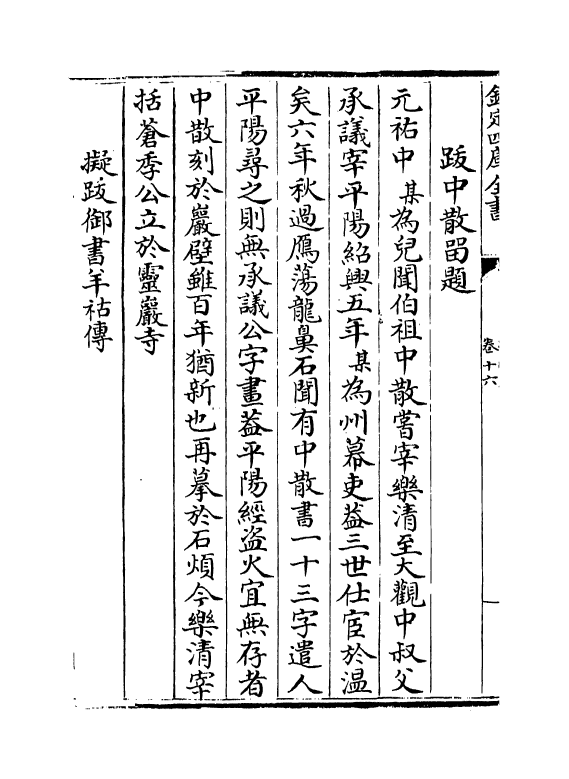 欽定四庫全書
卷十六
跋中散留題
元祐中某為兒聞伯祖中散嘗宰樂清至大觀中叔父
承議宰平陽紹興五年某為州幕吏葢三世仕宦於温
矣六年秋過鴈蕩龍鼻石聞有中散書一十三字遣人
平陽尋之則無承議公字畫葢平陽經盗火宜無存者
中散刻於巖壁雖百年猶新也再摹於石煩今樂清宰
括蒼季公立於靈巖寺
擬跋御書羊祜傳